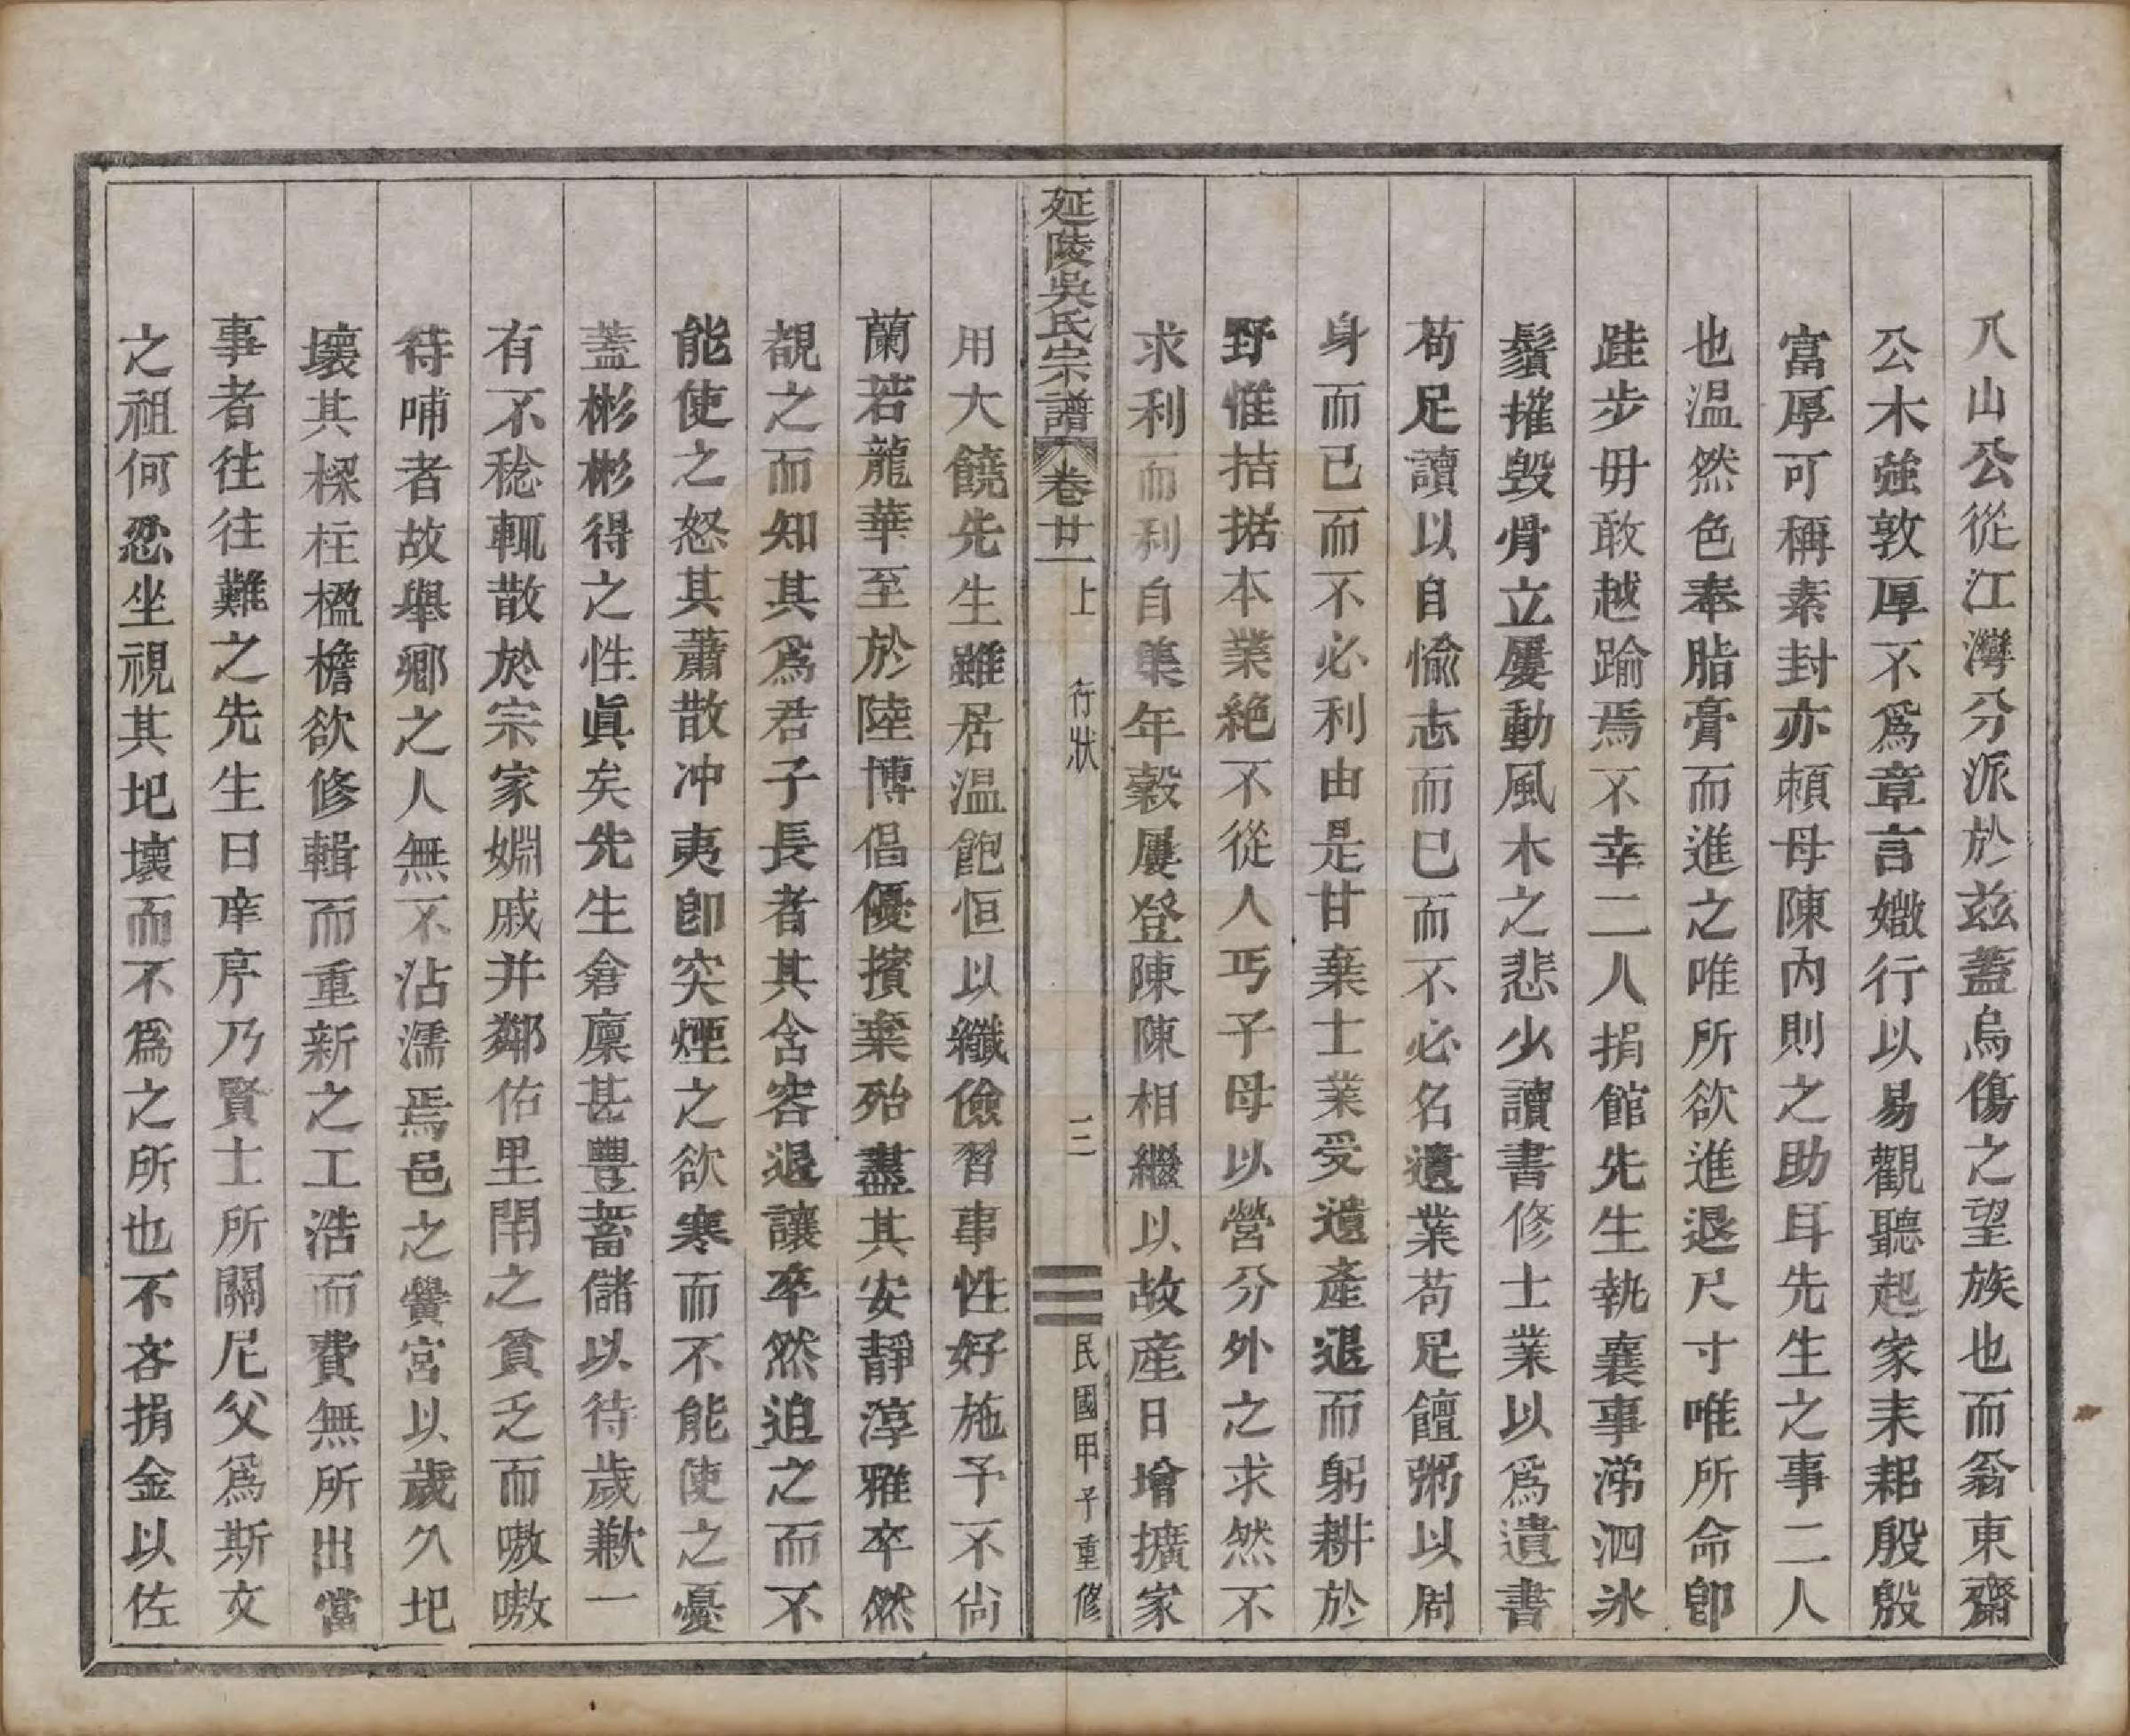 八山公從江灣分派於玆蓋烏傷之望族也而翁東齋
公木強敦厚不爲章言嬓行以易觀聽起家耒耜殷殷
富厚可稱素封亦頼母陳內則之助耳先生之事二人
也温然色奉脂膏而進之唯所欲進退尺寸唯所命卽
跬步毋敢越踰焉不幸二人捐館先生執襄事涕泗氷
鬚摧毁骨立屢動風木之悲少讀書修士業以爲遺書
苟足讀以自愉志而已而不必名遺業苟足饘粥以周
身而已而不必利由是甘棄士業受遺產退而躬耕於
野惟拮据本業絕不從人丐子母以營分外之求然不
求利而利自集年穀屢登陳陳相繼以故產日增擴家
延陵吳氏宗譜 卷廿一上 行狀 三 民國甲子重修
用大饒先生雖居温飽恒以纖儉習事性好施予不尙
蘭若龍華至於陸博倡優擯棄殆盡其安靜淳雅卒然
覩之而知其爲君子長者其含容退讓卒然迫之而不
能使之怒其蕭散冲夷卽突煙之欲寒而不能使之憂
蓋彬彬得之性眞矣先生倉廩甚豐蓄儲以待歲歉一
有不稔輒散於宗家婣戚并鄰佑里閈之貧乏而嗷嗷
待哺者故舉鄉之人無不沾濡焉邑之黌宮以歲久圯
壞其樑柱楹檐欲修輯而重新之工浩而費無所出當
事者往往難之先生曰庠序乃賢士所關尼父爲斯文
之祖何忍坐視其圯壞而不爲之所也不吝捐金以佐